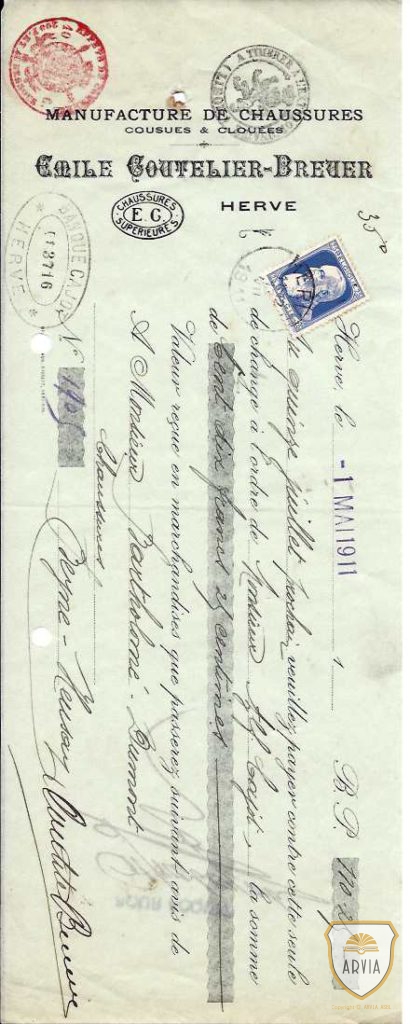 MANUFACTURE DE CHAUSSURES
COUSUES & CLOUÉES
EMILE COUTELIER-BREUER
HERVE
CHAUSSURES
E.C.
SUPÉRIEURES
A TIMBRER A L'EXTRAORDINAIRE
BANQUE CAJOT
113716
HERVE
35°
Herve, le - 1 MAI 1911 B.P. 110.25
Au quinze juillet prochain veuillez payer contre cette seule
de change à l'ordre de Monsieur Alf Cajot la somme
de Cent dix francs 25 centimes
Valeur reçue en marchandises que passerez suivant avis de
A Monsieur Bartholomé-Dumont
Chaussures
Nº 1105
Beyne-Heusay
ARVIA